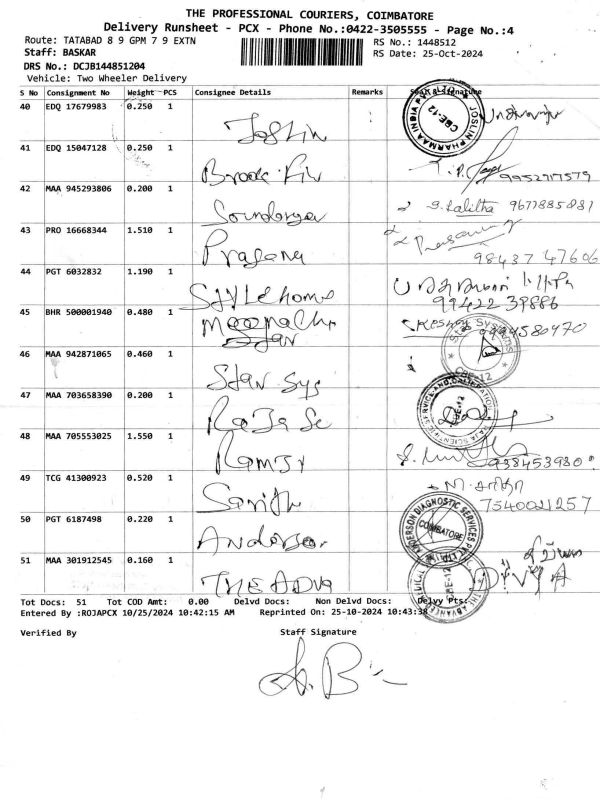 THE PROFESSIONAL COURIERS, COIMBATORE
Delivery Runsheet - PCX - Phone No.:0422-3505555 - Page No.:4
Route: TATABAD 8 9 GPM 7 9 EXTN
RS No.: 1448512
Staff: BASKAR
RS Date: 25-Oct-2024
DRS No.: DCJB144851204
Vehicle: Two Wheeler Delivery
S No Consignment No Weight PCS Consignee Details Remarks
40 EDQ 17679983 0.250 1
Joslin
JOSLIN PHARMAA INDIA PVT CBE-12
41 EDQ 15047128 0.250 1
Brook
9952717579
42 MAA 945293806 0.200 1
Soundarya
S. Lalitha 9677885881
43 PRO 16668344 1.510 1
Prasana
98437 47606
44 PGT 6032832 1.190 1
Style home
99422 39886
45 BHR 500001940 0.480 1
Meenachi
Star
46 MAA 942871065 0.460 1
Star Sys
CBE-12
47 MAA 703658390 0.200 1
Raja Sc
CBE-12
48 MAA 705553025 1.550 1
49 TCG 41300923 0.520 1
7540021257
50 PGT 6187498 0.220 1
Anderson
ANDERSON DIAGNOSTIC SERVICES PVT LTD COIMBATORE
51 MAA 301912545 0.160 1
THE ADVA
DIVYA
Tot Docs: 51 Tot COD Amt: 0.00 Delvd Docs: Non Delvd Docs: Delvy Pts:
Entered By :ROJAPCX 10/25/2024 10:42:15 AM Reprinted On: 25-10-2024 10:43:38
Verified By Staff Signature